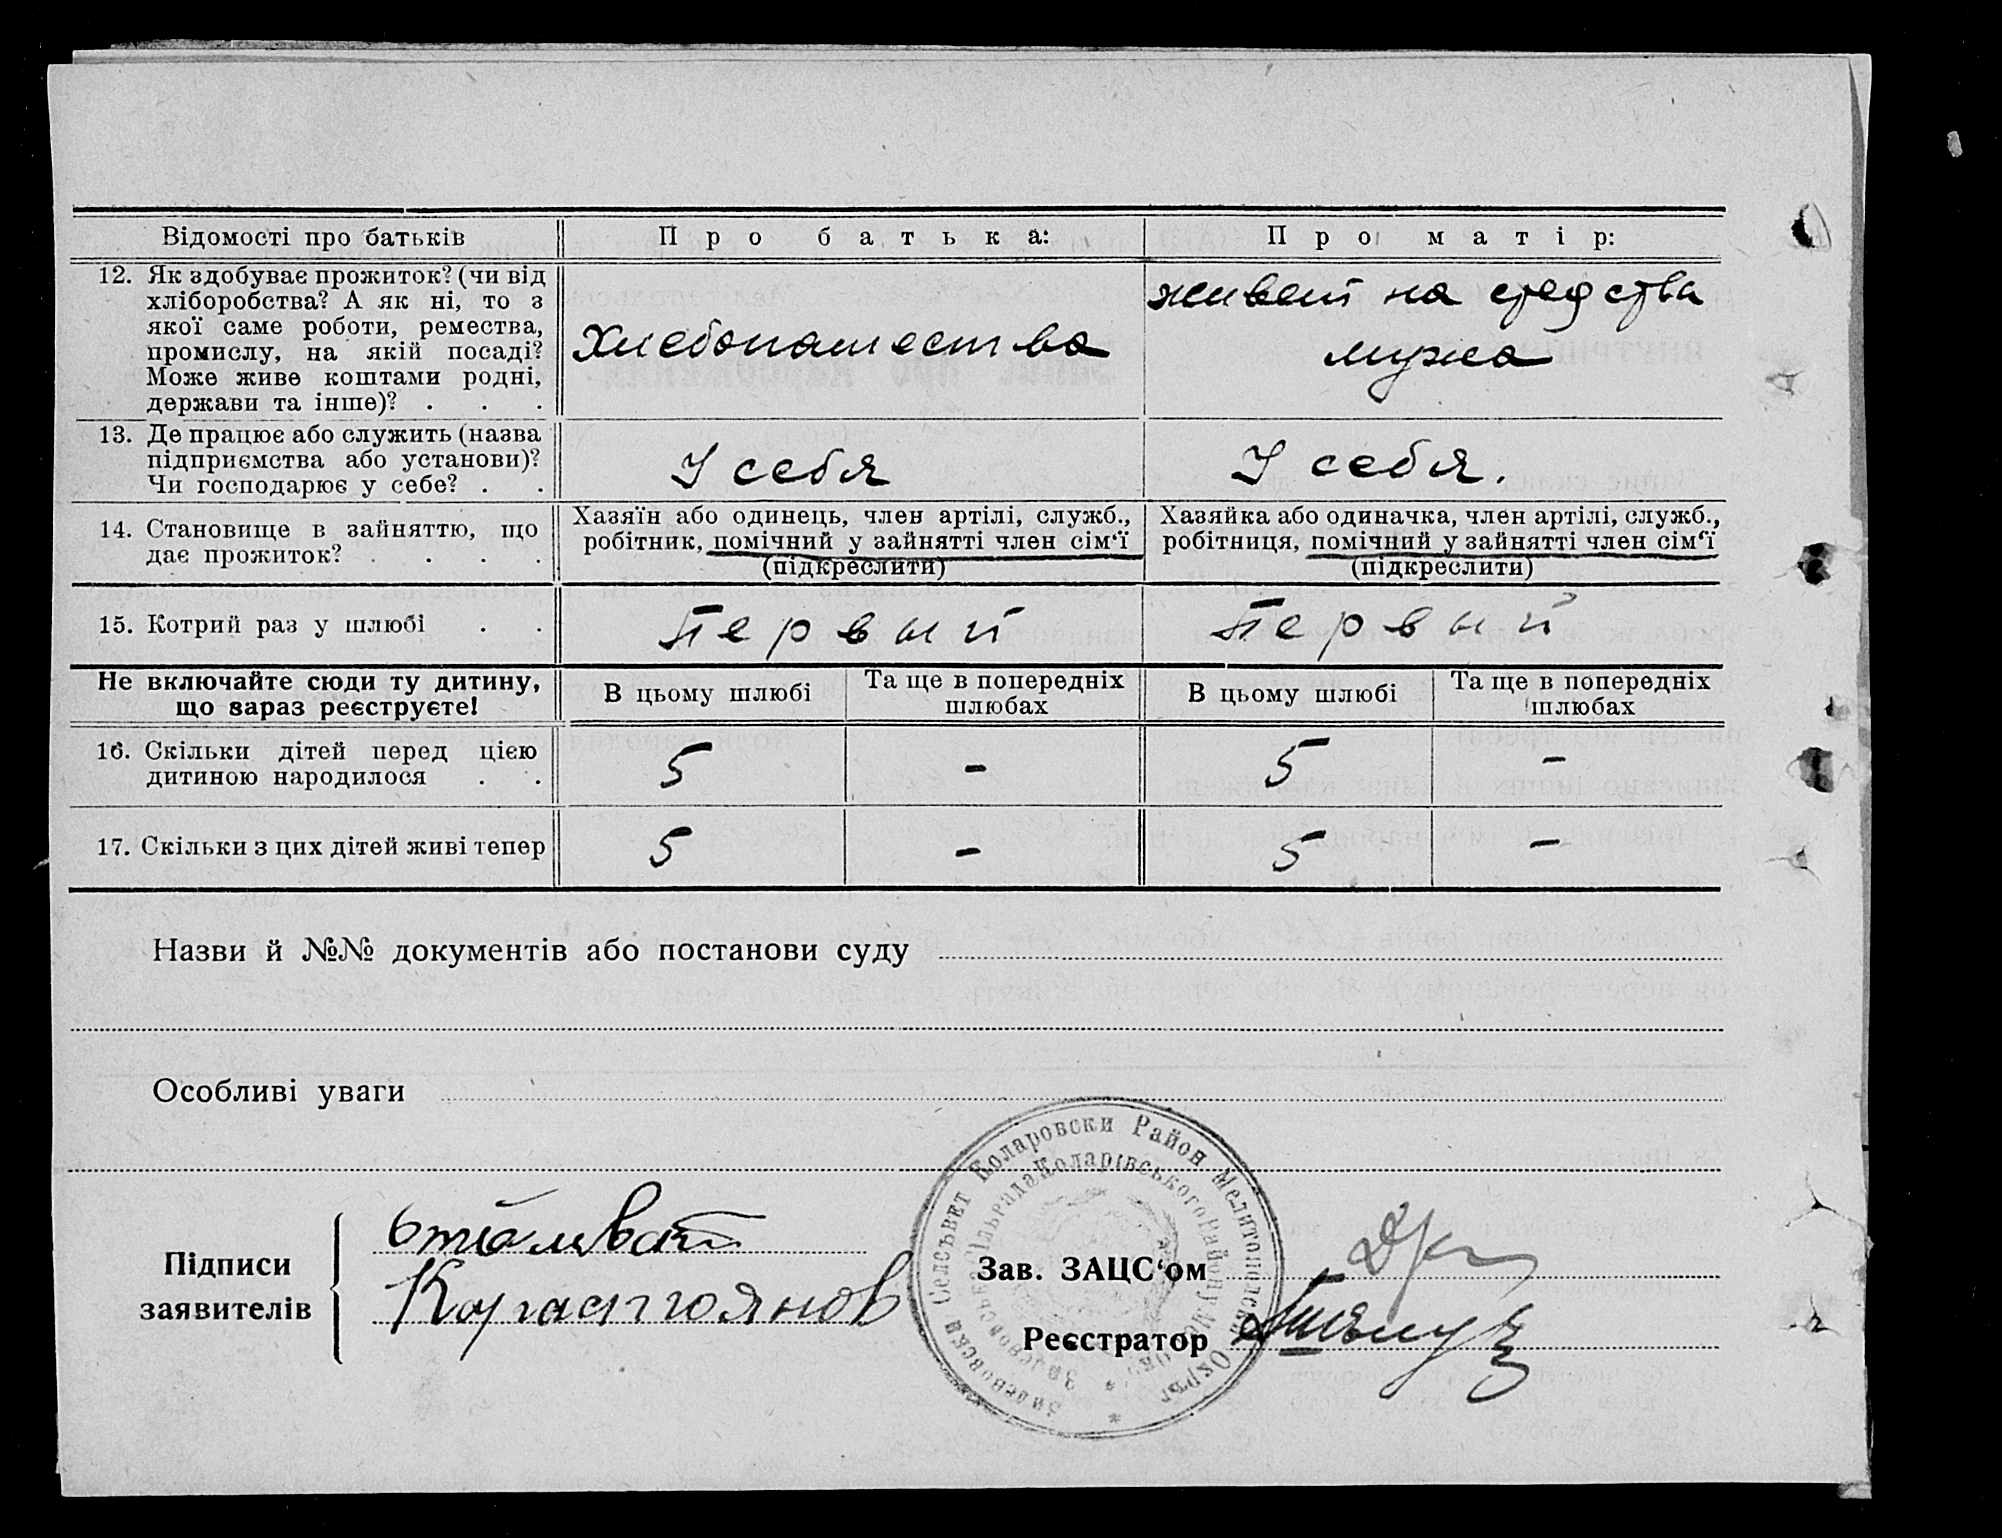 Відомості про батьків
Про батька:
Про матір:
12. Як здобуває прожиток? (чи від
хліборобства? А як ні, то з
якої саме роботи, ремества,
промислу, на якій посаді?
Може живе коштами родні,
держави та інше)? . . .
Хлебопашества
живет на средства
мужа
13. Де працює або служить (назва
підприємства або установи)?
Чи господарює у себе? . .
У себя
У себя.
14. Становище в зайняттю, що
дає прожиток? . . . .
Хазяїн або одинець, член артілі, служб.,
робітник, помічний у зайнятті член сім'ї
(підкреслити)
Хазяйка або одиначка, член артілі, служб.,
робітниця, помічний у зайнятті член сім'ї
(підкреслити)
15. Котрий раз у шлюбі . .
Первый
Первый
Не включайте сюди ту дитину,
що зараз реєструєте!
В цьому шлюбі
Та ще в попередніх
шлюбах
В цьому шлюбі
Та ще в попередніх
шлюбах
16. Скільки дітей перед цією
дитиною народилося . .
5
-
5
-
17. Скільки з цих дітей живі тепер
5
-
5
-
Назви й №№ документів або постанови суду
Особливі уваги
Коларовски Район Мелитополски Окръг
Селсъвет
Коларівського Району
Підписи
заявителів
Карастоянов
Зав. ЗАЦС'ом
Реєстратор